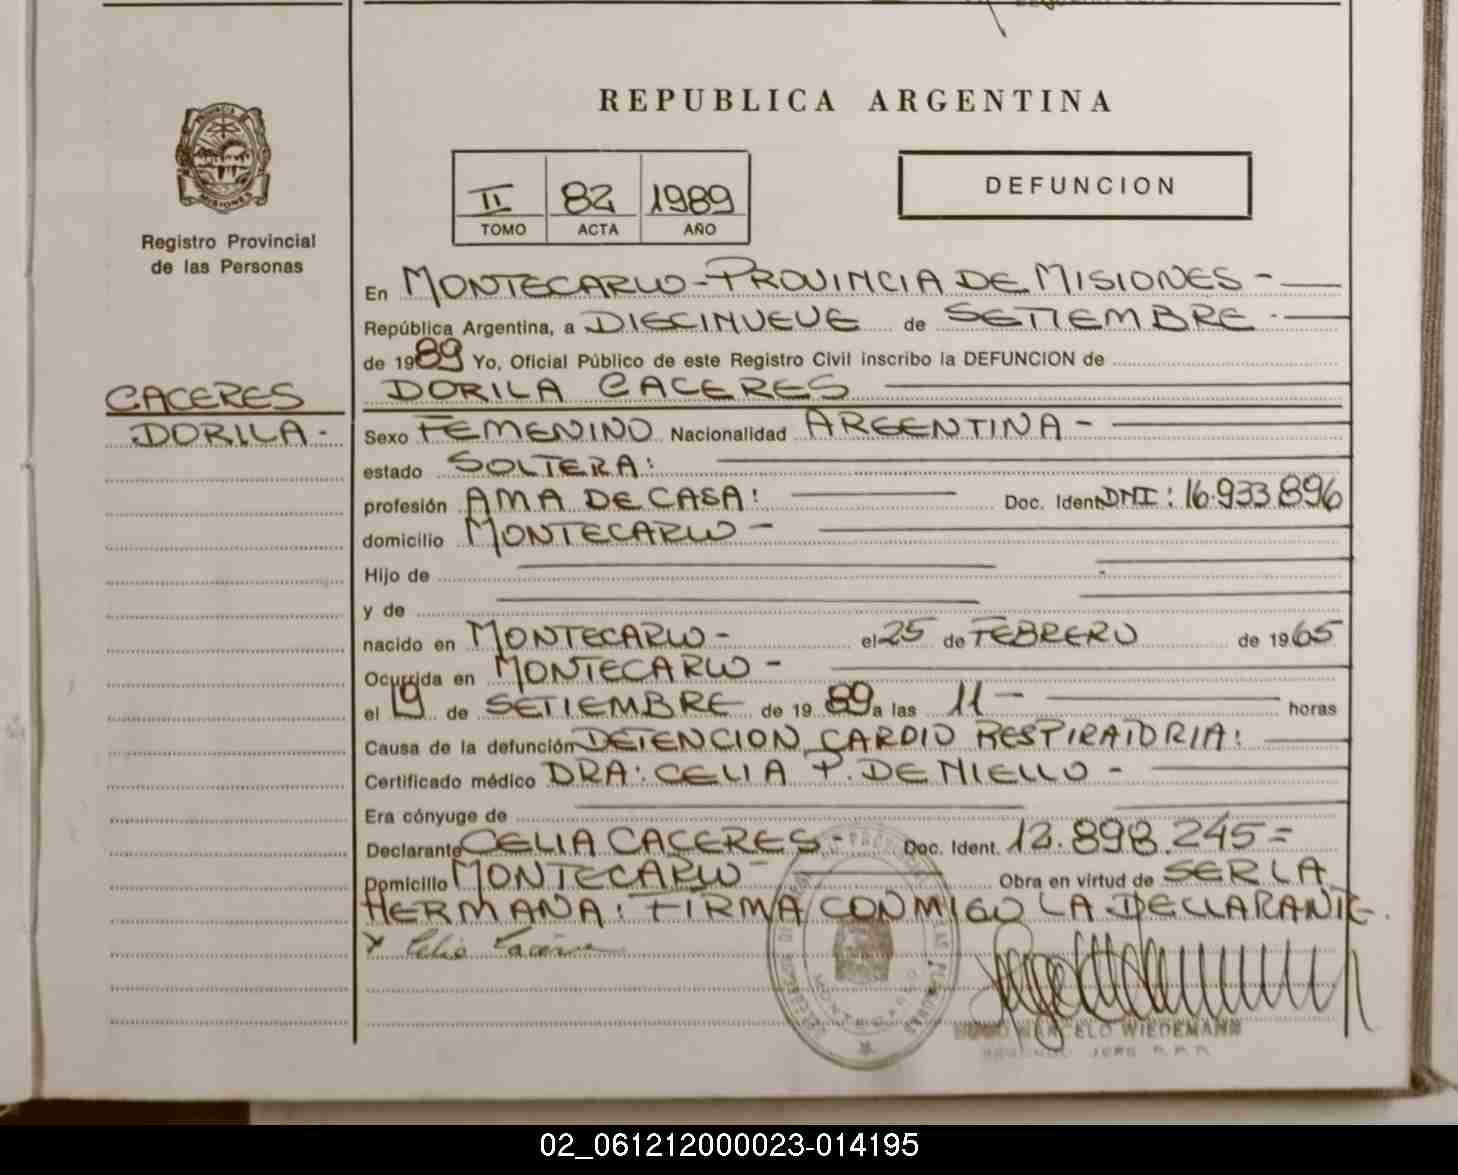 REPUBLICA ARGENTINA
PROVINCIA DE
MISIONES
Registro Provincial
de las Personas
II 82 1989
TOMO ACTA AÑO
DEFUNCION
En MONTECARLO-PROVINCIA DE MISIONES-
República Argentina, a DIECINUEVE de SETIEMBRE.
de 1989 Yo, Oficial Público de este Registro Civil inscribo la DEFUNCION de
CACERES
DORILA-
DORILA CACERES
Sexo FEMENINO Nacionalidad ARGENTINA-
estado SOLTERA:
profesión AMA DE CASA: Doc. Ident DNI: 16.933.896
domicilio MONTECARLO-
Hijo de
y de
nacido en MONTECARLO- el 25 de FEBRERO de 1965
Ocurrida en MONTECARLO-
el 19 de SETIEMBRE de 1989 a las 11- horas
Causa de la defunción DETENCION CARDIO RESPIRATORIA:
Certificado médico DRA: CELIA P. DE NIELLO-
Era cónyuge de
Declarante CELIA CACERES- Doc. Ident. 12.898.245=
Domicilio MONTECARLO- Obra en virtud de SER LA
HERMANA: FIRMA CONMIGO LA DECLARANTE.
x Celia Caceres
MONTECARLO
HUGO MARCELO WIEDEMANN
02_061212000023-014195